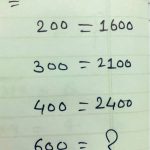 =
200 = 1600
300 = 2100
400 = 2400
600 = ?